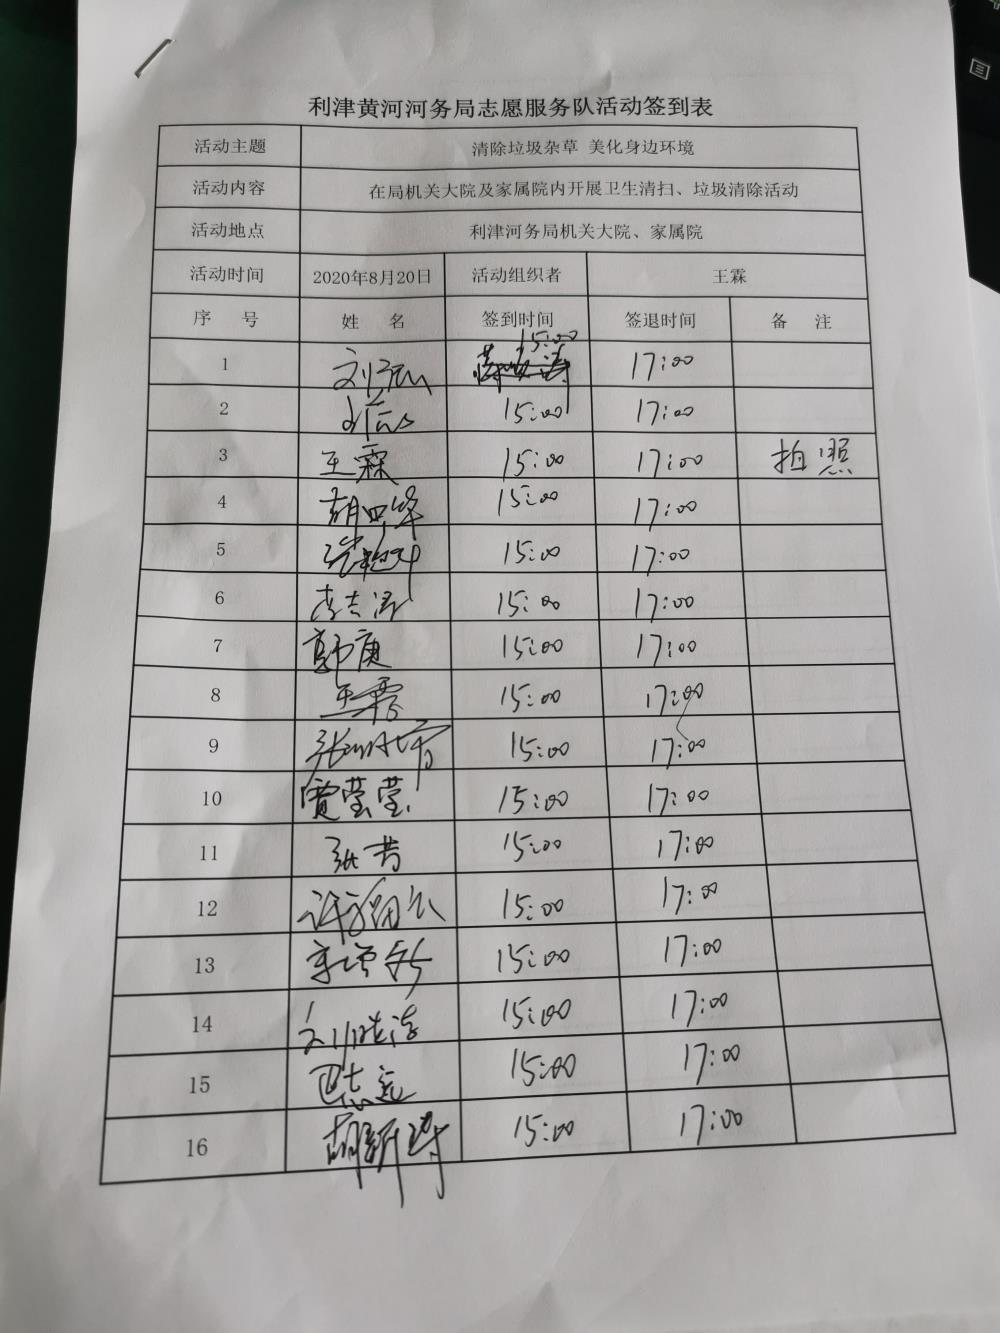 利津黄河河务局志愿服务队活动签到表
活动主题 清除垃圾杂草 美化身边环境
活动内容 在局机关大院及家属院内开展卫生清扫、垃圾清除活动
活动地点 利津河务局机关大院、家属院
活动时间 2020年8月20日 活动组织者 王霖
序 号 姓 名 签到时间 签退时间 备 注
1 15:00 17:00
2 15:00 17:00
3 王霖 15:00 17:00 拍照
4 胡四华 15:00 17:00
5 15:00 17:00
6 李志涛 15:00 17:00
7 郭庚 15:00 17:00
8 王霞 15:00 17:00
9 15:00 17:00
10 贾莹莹 15:00 17:00
11 张昔 15:00 17:00
12 15:00 17:00
13 15:00 17:00
14 刘晓涛 15:00 17:00
15 巴志远 15:00 17:00
16 15:00 17:00